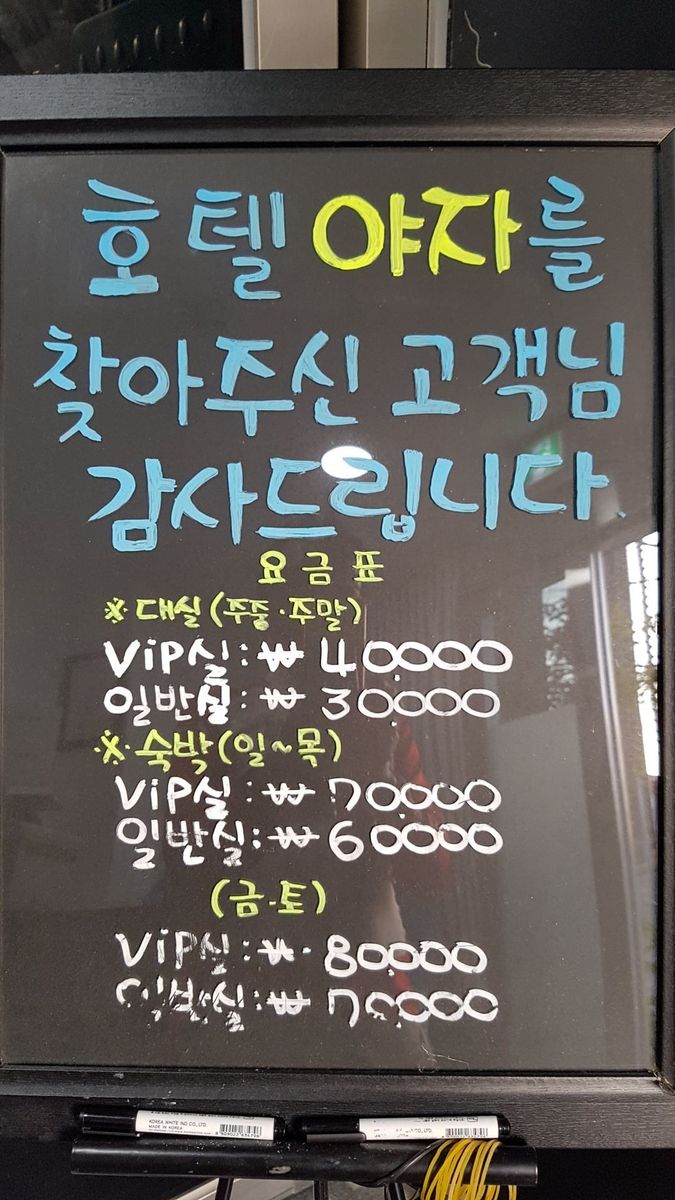 호텔 야자를
찾아주신 고객님
감사드립니다.
요금표
※ 대실 (주중·주말)
ViP실 : ₩ 40.000
일반실 : ₩ 30.000
※ 숙박 (일~목)
ViP실 : ₩ 70.000
일반실 : ₩ 60.000
(금·토)
ViP실 : ₩ 80.000
일반실 : ₩ 70.000
KOREA WHITE IND CO.,LTD.
MADE IN KOREA